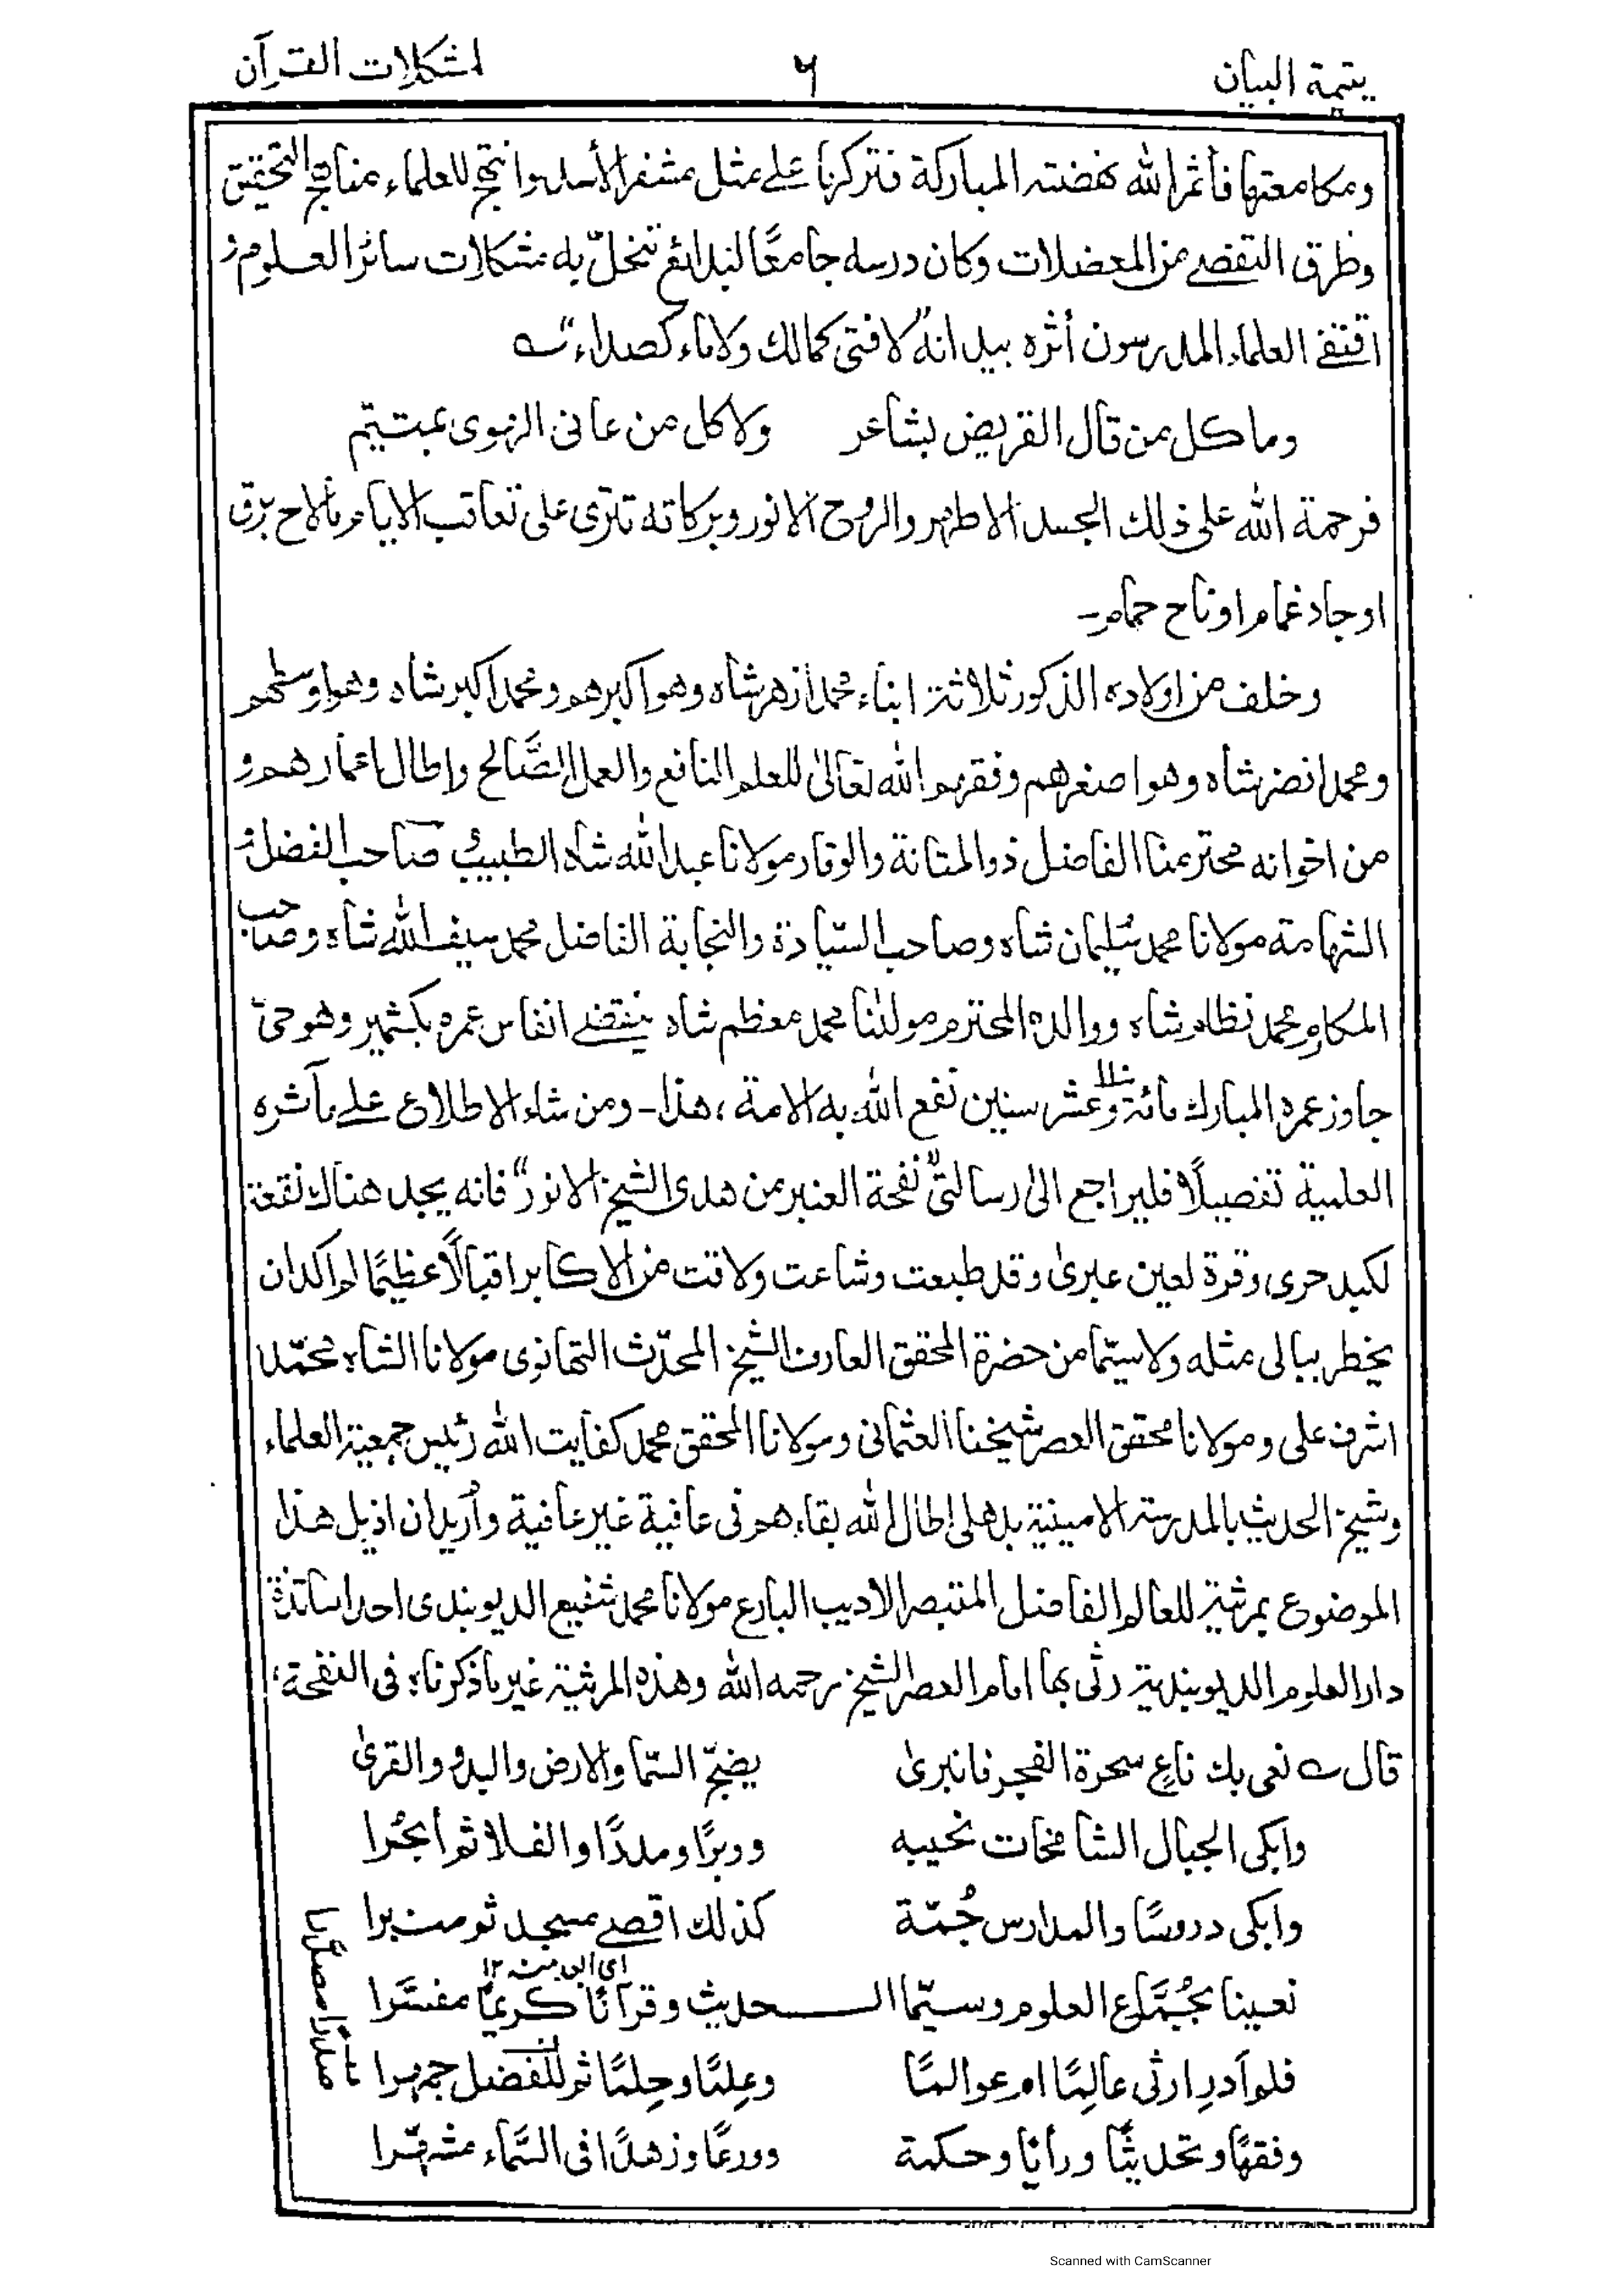 يتيمة البيان ٦ لمشكلات القرآن
ومكامعتها فأثمر الله نهضته المباركة فتركنا على مثل مشفر الأسد وانتج للعلماء مناهج التحقيق
وطرق التفصي من المعضلات وكان درسه جامعًا لبدائع تنحلّ به مشكلات سائر العلوم و
اقتفى العلماء المدرسون أثره بيد انه "لا فتى كمالك ولا ماء كصداء" ؎
وما كل من قال القريض بشاعر ولا كل من عانى الهوى بمتيّم
فرحمة الله على ذلك الجسد الاطهر والروح الانور وبركاته تترى على تعاقب الايام مالاح برق
او جاد غمام او ناح حمام۔
وخلف من اولاده الذكور ثلاثة ابناء محمد ازهر شاه وهو اكبرهم ومحمد اكبر شاه وهو اوسطهم
ومحمد انضر شاه وهو اصغرهم وفقهم الله تعالىٰ للعلم النافع والعمل الصَّالح واطال اعمارهم و
من اخوانه محترمنا الفاضل ذو المتانة والوقار مولانا عبد الله شاه الطبيب وصاحب الفضل و
الشهامة مولانا محمد سُليمان شاه وصاحب السّيادة والنجابة الفاضل محمد سيف الله شاه وصاحب
المكارم محمد نظام شاه ووالده المحترم مولٰنا محمد معظم شاه ينقضي انفاس عمره بكشمير وهو حيّ
جاوز عمره المبارك مائة وعشر سنين نفع الله به الامة، هذا۔ ومن شاء الاطلاع على مآثره
العلمية تفصيلًا فليراجع الىٰ رسالتي "نفحة العنبر من هدى الشيخ الانور" فانه يجد هناك نقعة
لكبد حرى وقرة لعين عبرىٰ وقد طبعت وشاعت ولاقت من الاكابر اقبالًا عظيمًا لم اكد ان
يخطر ببالى مثله ولا سيّما من حضرة المحقق العارف الشيخ المحدّث التهانوى مولانا الشاه محمّد
اشرف على ومولانا محقق العصر شيخنا العثمانى ومولانا المحقق محمد كفايت الله رئيس جمعية العلماء
وشيخ الحديث بالمدرسة الامينية بدهلى اطال الله بقاءهم فى عافية غير عافية وأريد ان اذيل هذا
الموضوع بمرثية للعالم الفاضل المتبصر الاديب البارع مولانا محمد شفيع الديوبندى احد اساتذة
دار العلوم الديوبندية رثى بها امام العصر الشيخ رحمه الله وهذه المرثية غير ماذكرناه فى النفحة،
قال ؎ نعى بك ناعٍ سحرة الفجر فانبرىٰ يضجّ السّما والارض والبدو والقرىٰ
وابكى الجبال الشامخات نحيبه ووبرًا ومدرًا والفلا ثم ابحُرا
وابكى دروسًا والمدارس جُمّة كذلك اقصى مسجد ثم منبرا
اى ابى منه ١٢
نعينا بجُمّاع العلوم وسيّما الـحديث وقرآنًا كريمًا مفسَّرا
فلم أدرِ ارثى عالِمًا ام عوالمًا وعِلمًا وحِلمًا ثم للفضل جمهرا
وفقهًا وتحديثًا ورأيًا وحكمة وورعًا وزهدًا فى السَّماء مشهّرا